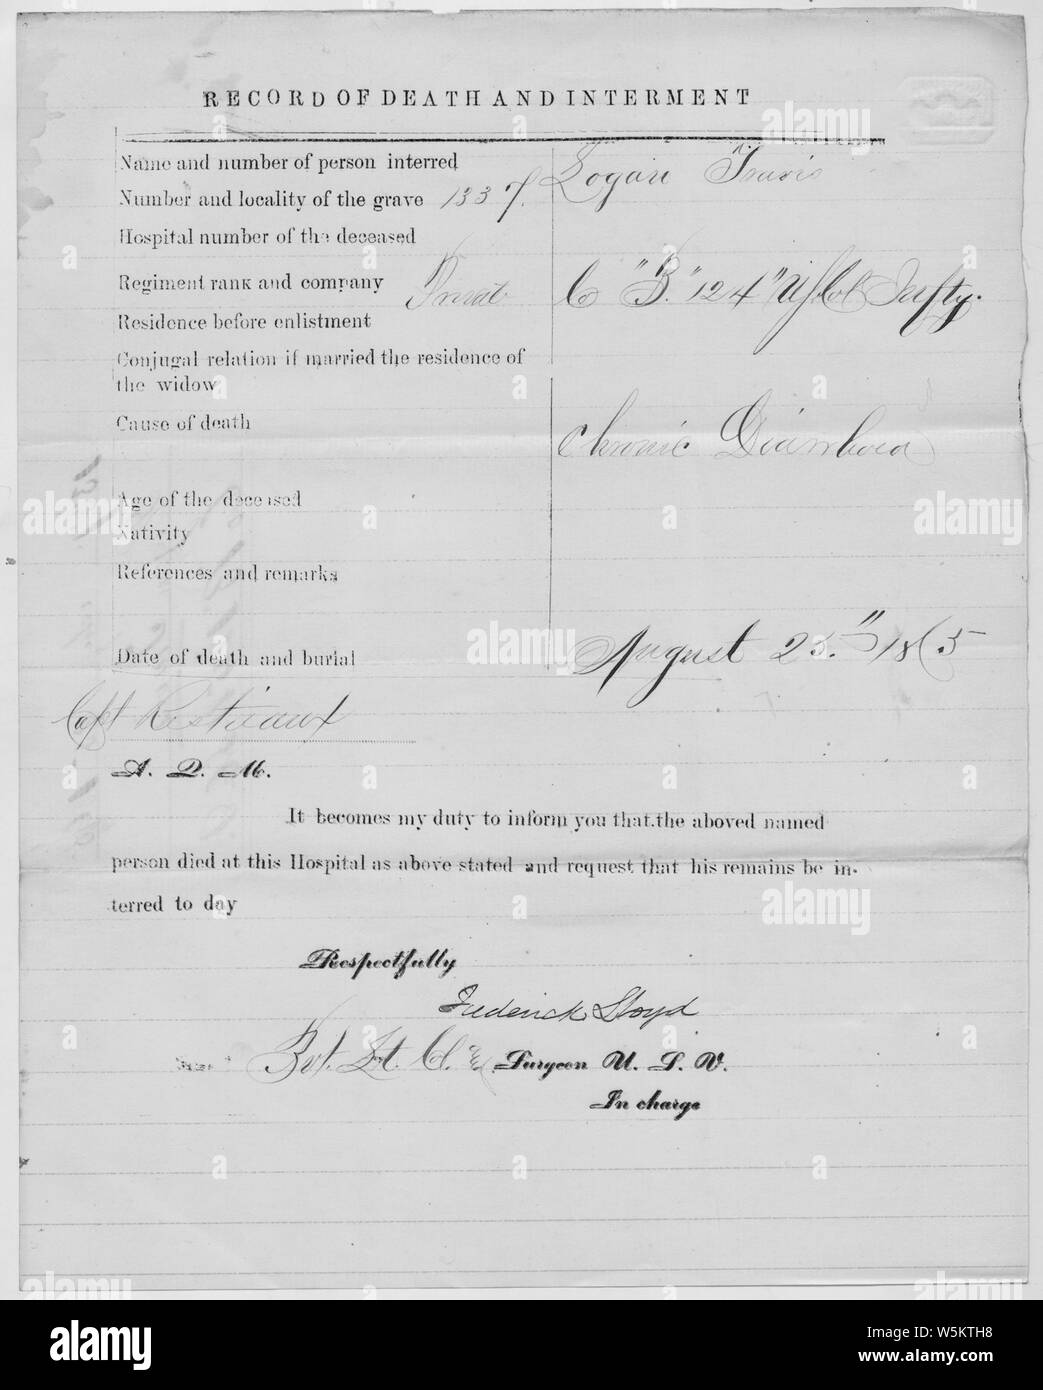 RECORD OF DEATH AND INTERMENT
Name and number of person interred Logan Travis
Number and locality of the grave 1337.
Hospital number of the deceased
Regiment rank and company Privat Co "B." 124" U.S. Col Infty.
Residence before enlistment
Conjugal relation if married the residence of
the widow
Cause of death Chronic Diarrhoea
Age of the deceased
Nativity
References and remarks
Date of death and burial August 25." 1865
Capt Restieaux
A. Q. M.
It becomes my duty to inform you that the aboved named
person died at this Hospital as above stated and request that his remains be in-
terred to day
Respectfully
Frederick Lloyd
Bvt. Lt. Col. & Surgeon U. S. V.
In charge
alamy
a
alamy
Image ID: W5KTH8
www.alamy.com